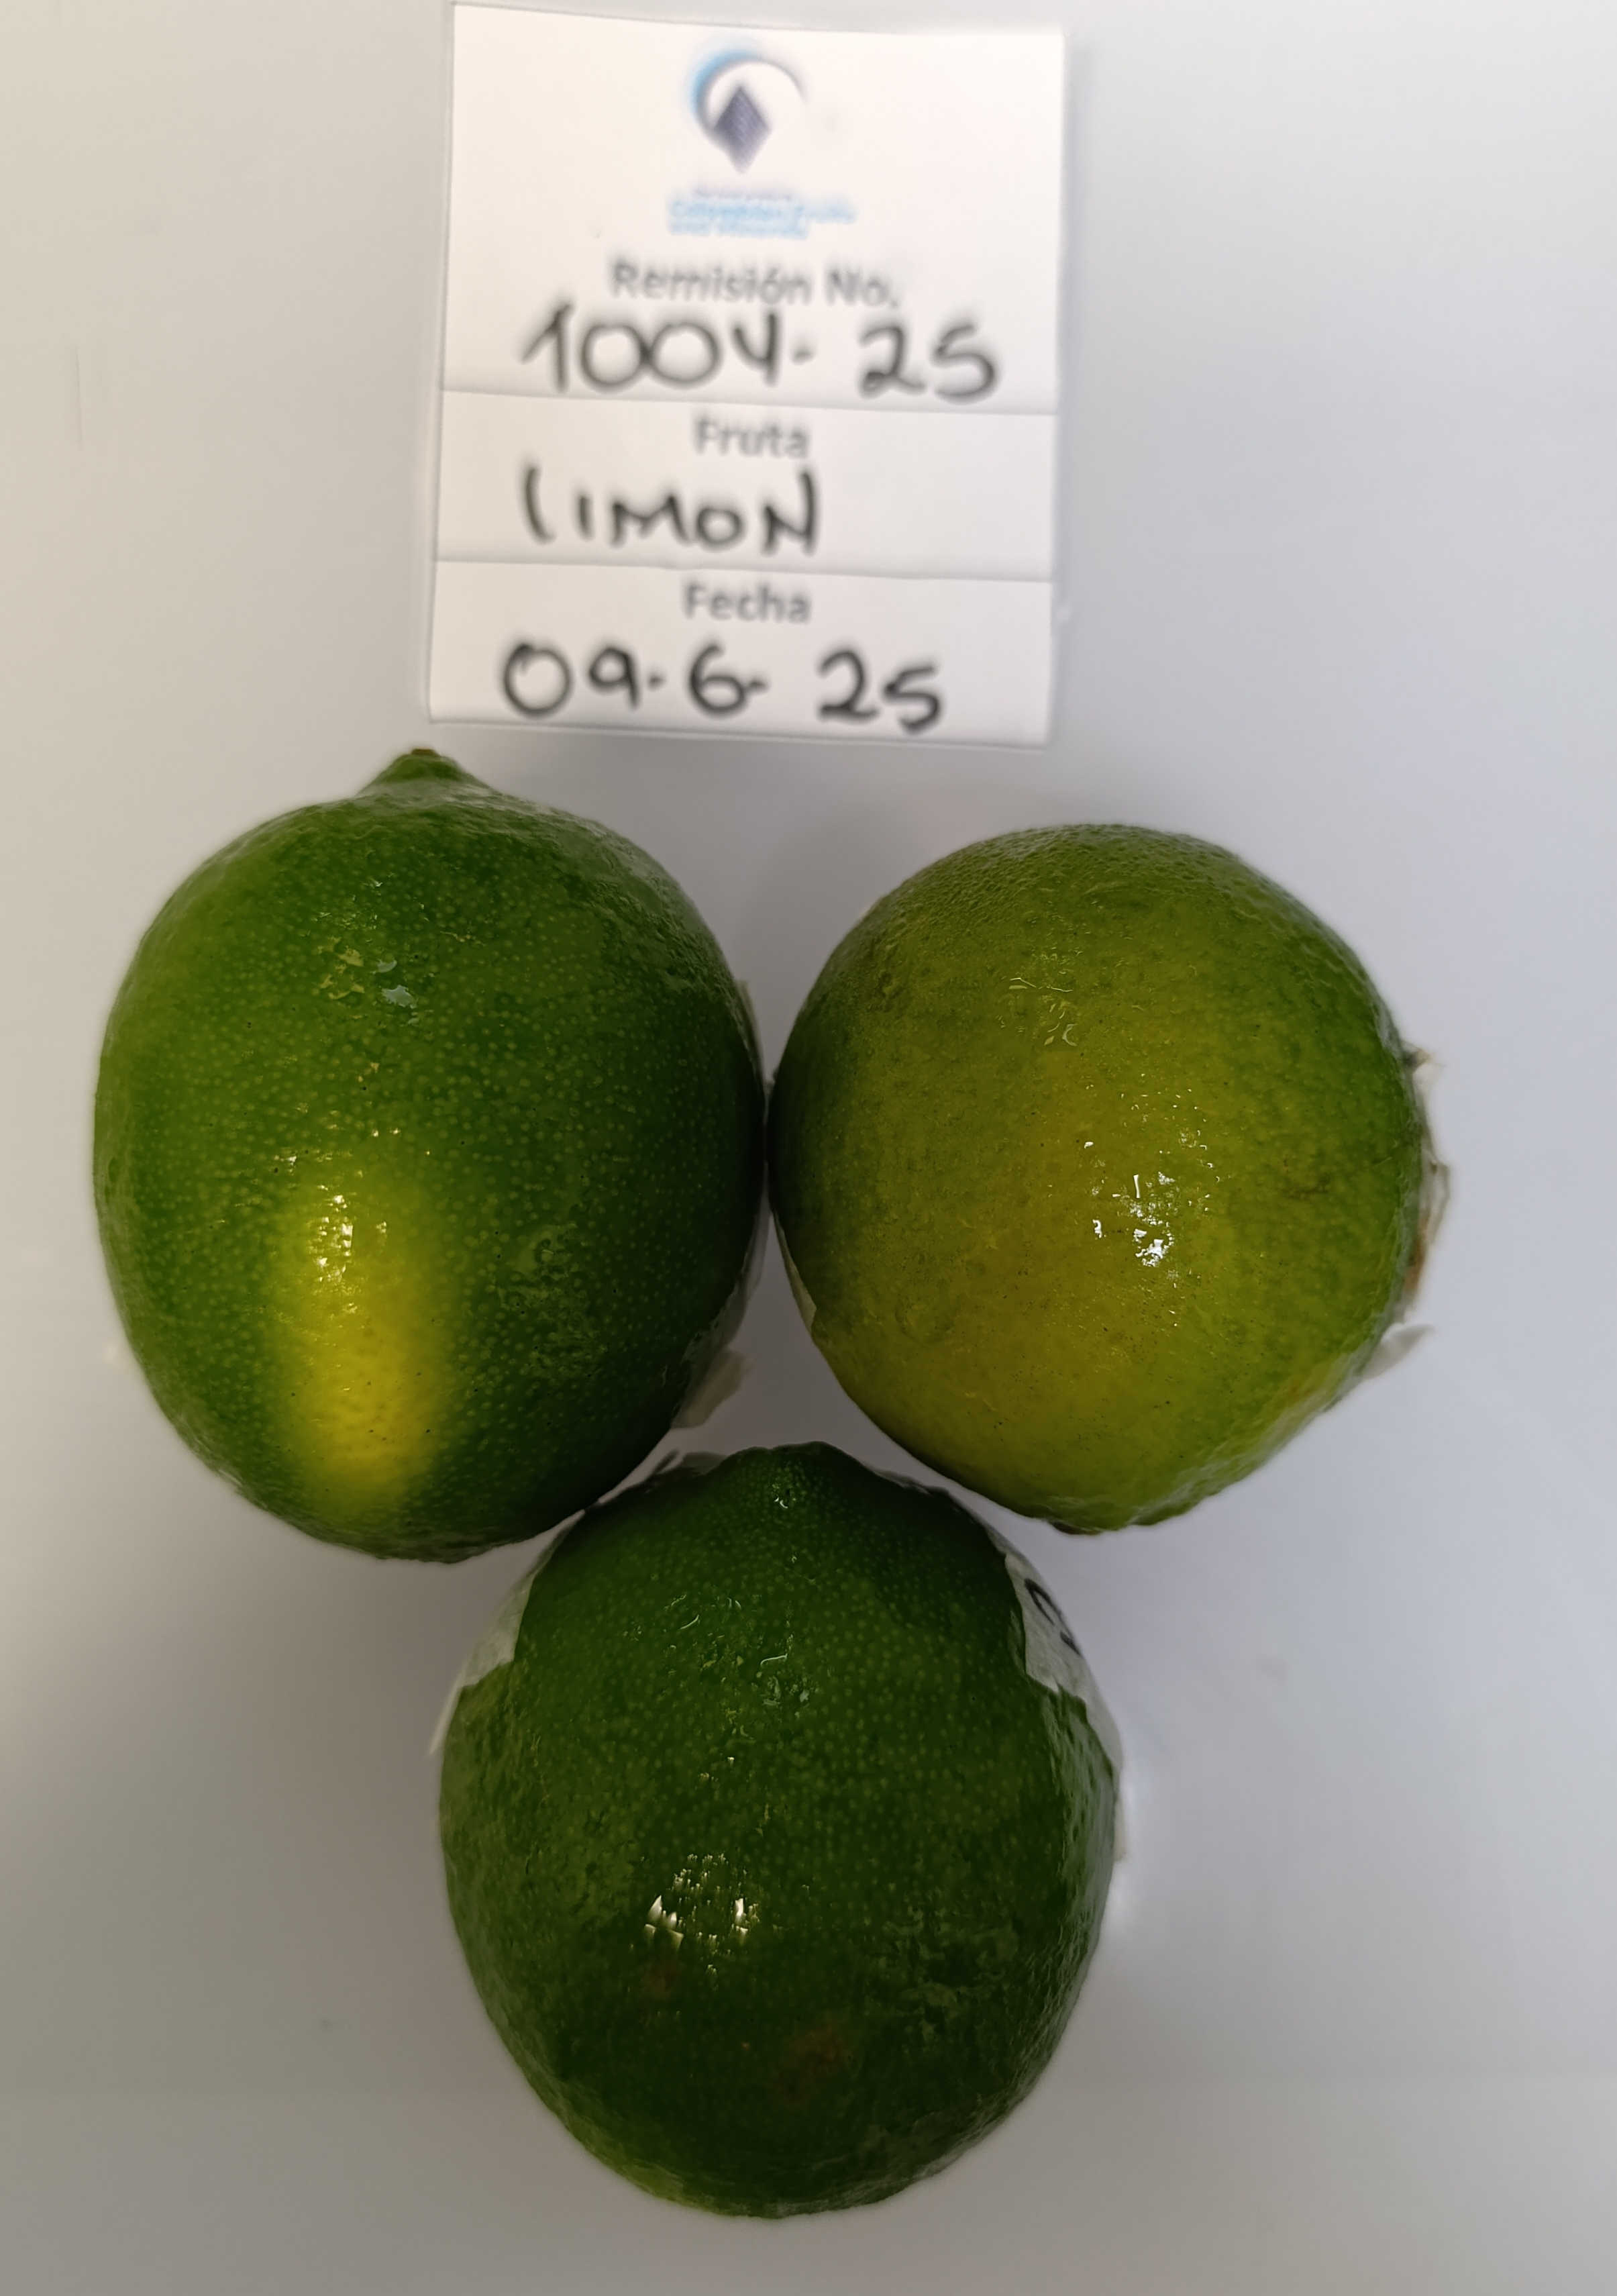 Remisión No.
1004-25
Fruta
LIMON
Fecha
09-6-25